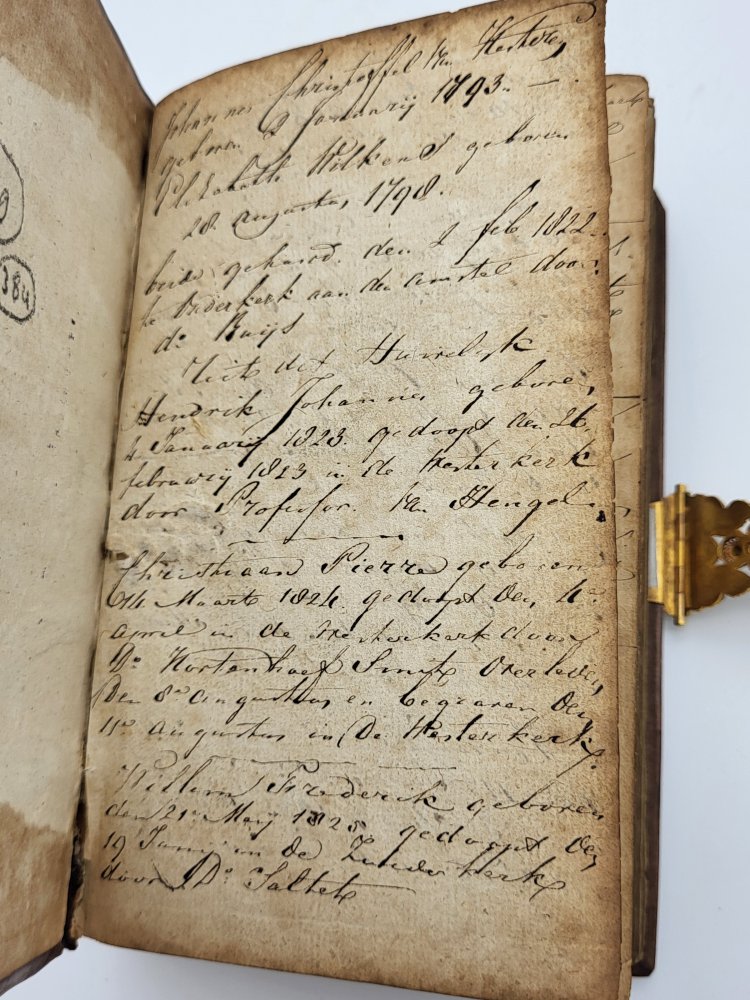 Johannes Christoffel van Kesteren
geboren 9 Januarij 1793. —
Elisabeth Wilkens geboren
28 augustus 1798.
beide gehuwd den 2 feb 1822
te Ouderkerk aan den amstel door
ds Buijs
Uit dit Huwelijk
Hendrik Johannes geboren
4 Januarij 1823. gedoopt den 26
februarij 1823 in de Westerkerk
door Professor van Hengel
Christiaan Pierre geboren
14 Maart 1824. gedoopt Den 4e
april in de Westerkerk door
Ds Kortenhoef Smith Overleden
Den 8e augustus en begraven Den
11e augustus in De Westerkerk.
Willem Frederik geboren
den 21e Meij 1825 gedoopt Den
19 Junij in De Zuiderkerk
door Ds Saltet
9
384